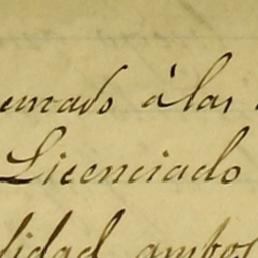 emado á las
Licenciado
lidad ambos